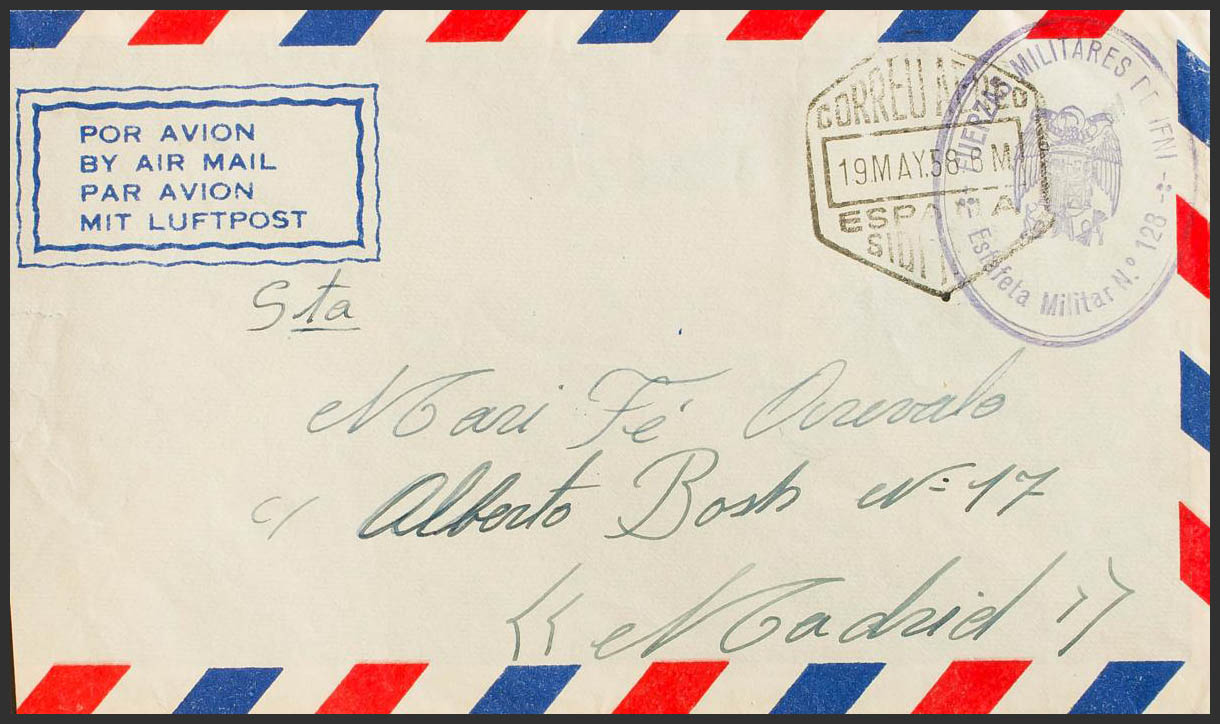 POR AVION
BY AIR MAIL
PAR AVION
MIT LUFTPOST
CORREO AEREO
19.MAY.58. 8 M
ESPAÑA
SIDI
FUERZAS MILITARES DE IFNI
Estafeta Militar N.º 128
Sta
Mari Fé Arevalo
c/ Alberto Bosh nº 17
<< Madrid >>